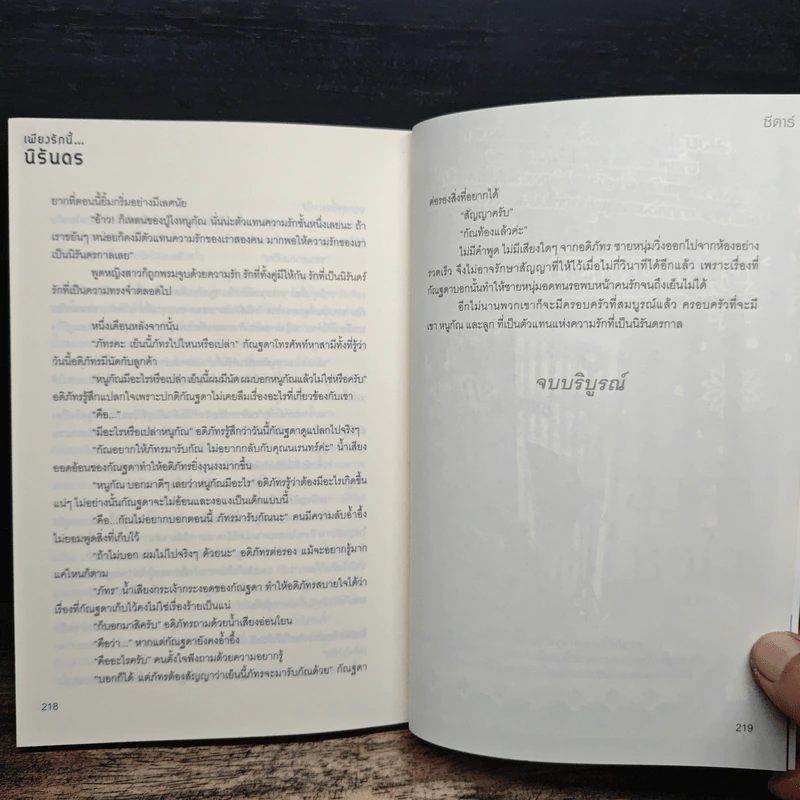 เพียงรักนี้...
นิรันดร
ยากที่ตอนนี้ยิ้มกริ่มอย่างมีเลศนัย
"อ้าว! ก็เหลนของปู่ไงหนูกัณ นั่นน่ะตัวแทนความรักชั้นหนึ่งเลยนะ ถ้า
เราขยันๆ หน่อยก็คงมีตัวแทนความรักของเราสองคน มาพอให้ความรักของเรา
เป็นนิรันดรกาลเลย"
พูดหญิงสาวก็ถูกพรมจูบด้วยความรัก รักที่ทั้งคู่มีให้กัน รักที่เป็นนิรันดร์
รักที่เป็นความทรงจำตลอดไป
หนึ่งเดือนหลังจากนั้น
"ภัทรคะ เย็นนี้ภัทรไปไหนหรือเปล่า" กัณฐดาโทรศัพท์หาสามีทั้งที่รู้ว่า
วันนี้อดิภัทรมีนัดกับลูกค้า
"หนูกัณมีอะไรหรือเปล่า เย็นนี้ผมมีนัด ผมบอกหนูกัณแล้วไม่ใช่หรือครับ"
อดิภัทรรู้สึกแปลกใจเพราะปกติกัณฐดาไม่เคยลืมเรื่องอะไรที่เกี่ยวข้องกับเขา
"คือ..."
"มีอะไรหรือเปล่าหนูกัณ" อดิภัทรรู้สึกว่าวันนี้กัณฐดาดูแปลกไปจริงๆ
"กัณอยากให้ภัทรมารับกัณ ไม่อยากกลับกับคุณนเรนทร์ค่ะ" น้ำเสียง
ออดอ้อนของกัณฐดาทำให้อดิภัทรยิ่งงุนงงมากขึ้น
"หนูกัณ บอกมาดีๆ เลยว่าหนูกัณมีอะไร" อดิภัทรรู้ว่าต้องมีอะไรเกิดขึ้น
แน่ๆ ไม่อย่างนั้นกัณฐดาจะไม่อ้อนและงอแงเป็นเด็กแบบนี้
"คือ...กัณไม่อยากบอกตอนนี้ ภัทรมารับกัณนะ" คนมีความลับอ้ำอึ้ง
ไม่ยอมพูดสิ่งที่เก็บไว้
"ถ้าไม่บอก ผมไม่ไปจริงๆ ด้วยนะ" อดิภัทรต่อรอง แม้จะอยากรู้มาก
แค่ไหนก็ตาม
"ภัทร" น้ำเสียงกระเง้ากระงอดของกัณฐดา ทำให้อดิภัทรสบายใจได้ว่า
เรื่องที่กัณฐดาเก็บไว้คงไม่ใช่เรื่องร้ายเป็นแน่
"ก็บอกมาสิครับ" อดิภัทรถามด้วยน้ำเสียงอ่อนโยน
"คือว่า..." หากแต่กัณฐดายังคงอ้ำอึ้ง
"คืออะไรครับ" คนตั้งใจฟังถามด้วยความอยากรู้
"บอกก็ได้ แต่ภัทรต้องสัญญาว่าเย็นนี้ภัทรจะมารับกัณด้วย" กัณฐดา
218
ชีดาร์
ต่อรองสิ่งที่อยากได้
"สัญญาครับ"
"กัณท้องแล้วค่ะ"
ไม่มีคำพูด ไม่มีเสียงใดๆ จากอดิภัทร ชายหนุ่มวิ่งออกไปจากห้องอย่าง
รวดเร็ว จึงไม่อาจรักษาสัญญาที่ให้ไว้เมื่อไม่กี่วินาทีได้อีกแล้ว เพราะเรื่องที่
กัณฐดาบอกนั้นทำให้ชายหนุ่มอดทนรอพบหน้าคนรักจนถึงเย็นไม่ได้
อีกไม่นานพวกเขาก็จะมีครอบครัวที่สมบูรณ์แล้ว ครอบครัวที่จะมี
เขา หนูกัณ และลูก ที่เป็นตัวแทนแห่งความรักที่เป็นนิรันดรกาล
จบบริบูรณ์
219